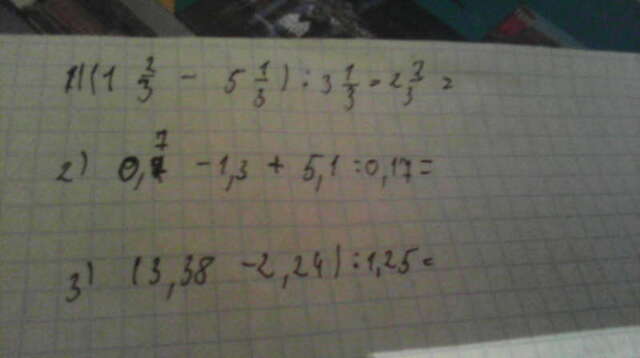 1) (1 2/3 - 5 1/3) : 3 1/3 - 2 2/3 =
2) 0,7 - 1,3 + 5,1 : 0,17 =
3) (3,38 - 2,24) : 1,25 =